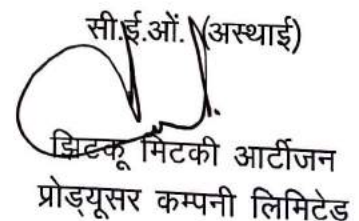 सी.ई.ओं. (अस्थाई)
झिटकू मिटकी आर्टीजन
प्रोड्यूसर कम्पनी लिमिटेड